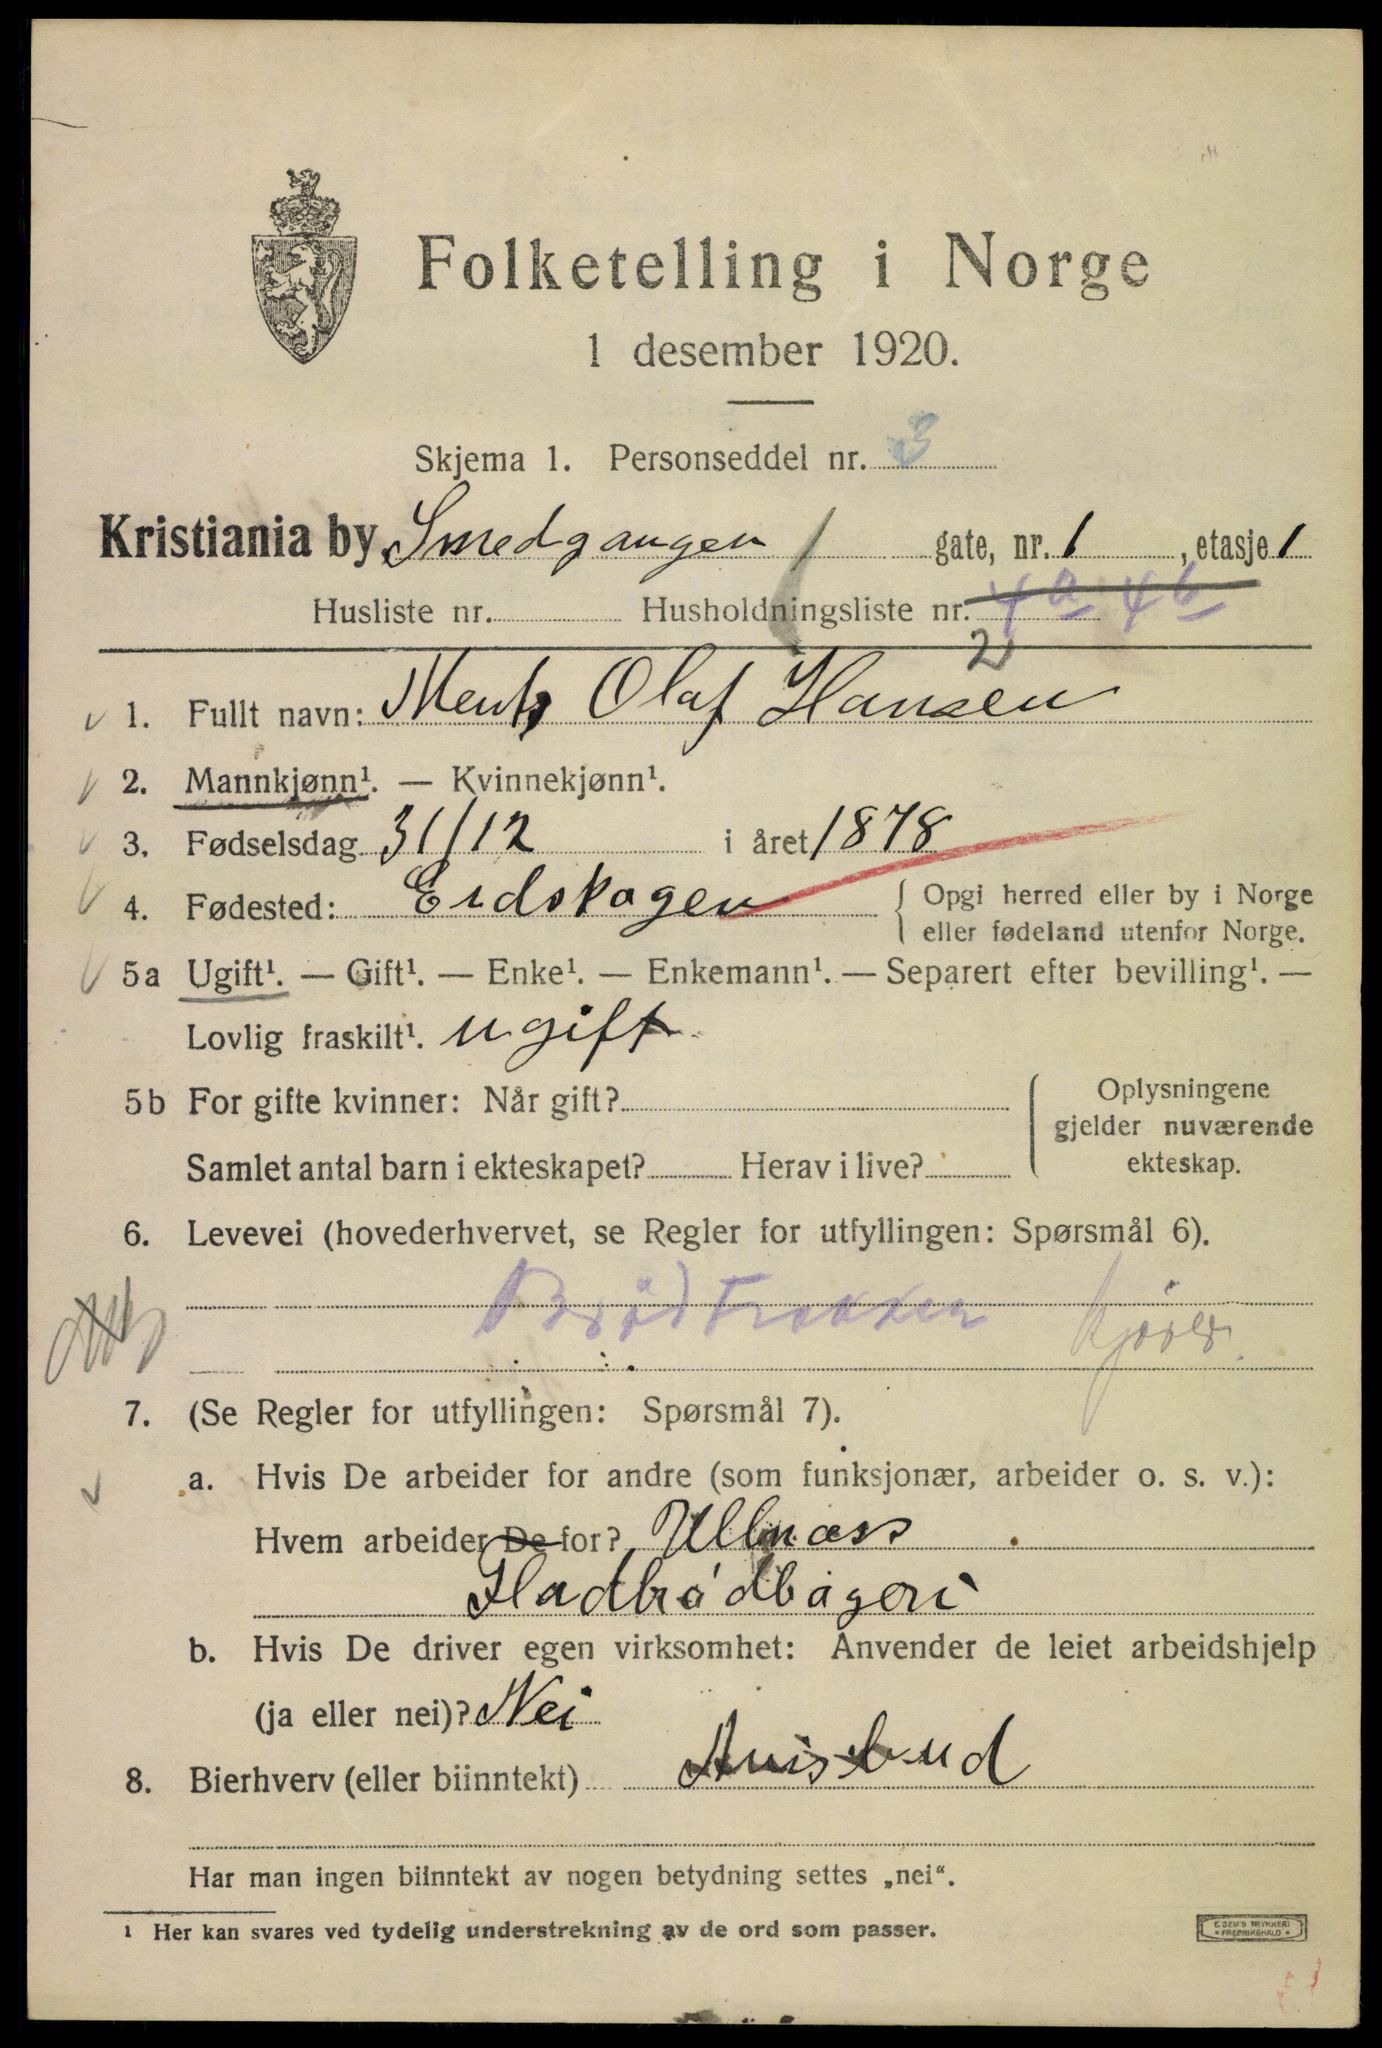 Folketelling i Norge
1 desember 1920.
Skjema 1. Personseddel nr. 3
Kristiania by, Smedgangen 1 gate, nr. 1, etasje 1
Husliste nr. Husholdningsliste nr. 4a 4b
2
1. Fullt navn: Mentz Olaf Hansen
2. Mannkjønn¹. — Kvinnekjønn¹.
3. Fødselsdag 31/12 i året 1878
4. Fødested: Eidskogen { Opgi herred eller by i Norge
eller fødeland utenfor Norge.
5a Ugift¹. — Gift¹. — Enke¹. — Enkemann¹. — Separert efter bevilling¹. —
Lovlig fraskilt¹. ugift
5b For gifte kvinner: Når gift? { Oplysningene
gjelder nuværende
Samlet antal barn i ekteskapet? Herav i live? ekteskap.
6. Levevei (hovederhvervet, se Regler for utfyllingen: Spørsmål 6).
Brödtrekker kjörer
7. (Se Regler for utfyllingen: Spørsmål 7).
a. Hvis De arbeider for andre (som funksjonær, arbeider o. s. v.):
Hvem arbeider De for? Ullnæss
Fladbrødbageri
b. Hvis De driver egen virksomhet: Anvender de leiet arbeidshjelp
(ja eller nei)? Nei
8. Bierhverv (eller biinntekt) Avisbud
Har man ingen biinntekt av nogen betydning settes „nei“.
1 Her kan svares ved tydelig understrekning av de ord som passer.
E SEM'S TRYKKERI
* FREDRIKSHALD *